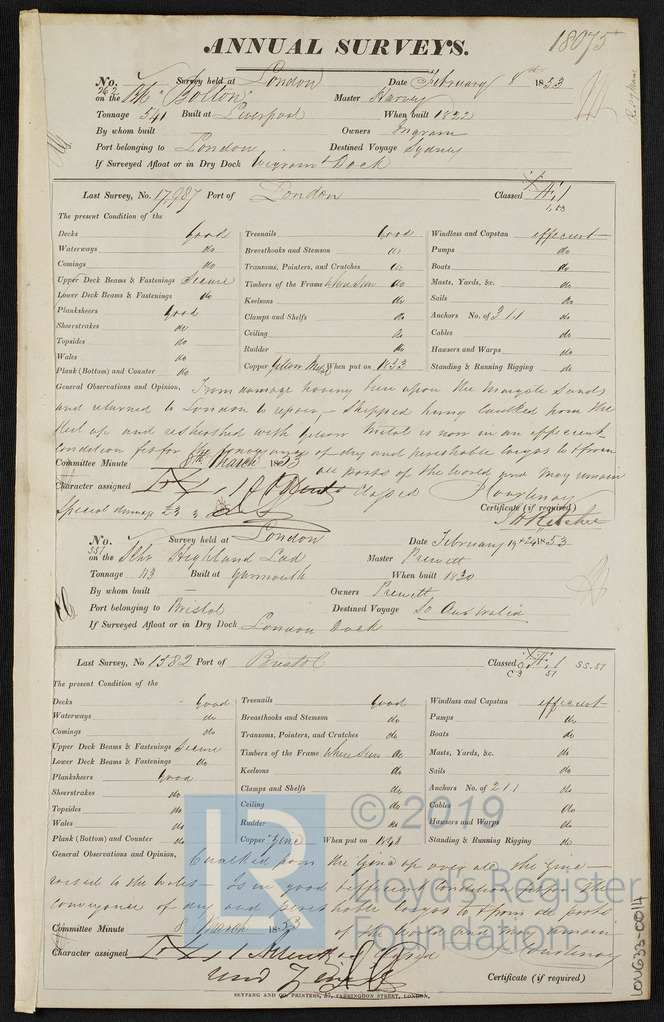 18075
ANNUAL SURVEYS.
No. 762 Survey held at London Date February 8th 1853
on the Bk "Bolton" Master Harvey
Tonnage 541 Built at Liverpool When built 1822
By whom built Owners Ingram
Port belonging to London Destined Voyage Sydney
If Surveyed Afloat or in Dry Dock Wigram's Dock
Last Survey, No. 17987 Port of London Classed Æ 1
1.53
The present Condition of the
Decks Good Treenails Good Windlass and Capstan efficient
Waterways do Breasthooks and Stemson do Pumps do
Comings do Transoms, Pointers, and Crutches do Boats do
Upper Deck Beams & Fastenings Secure Timbers of the Frame where seen do Masts, Yards, &c. do
Lower Deck Beams & Fastenings do Keelsons do Sails do
Planksheers Good Clamps and Shelfs do Anchors No. of 3 1 1 do
Sheerstrakes do Ceiling do Cables do
Topsides do Rudder do Hawsers and Warps do
Wales do Copper Yellow Metal When put on 1853 Standing & Running Rigging do
Plank (Bottom) and Counter do
General Observations and Opinion, From damage having been upon the Margate Sands
and returned to London to repair, - Stripped being caulked from the
Keel up and resheathed with Yellow Metal is now in an efficient
condition fit for the conveyance of dry and perishable cargos to & from
all parts of the World and may remain
Committee Minute 8th March 1853
Character assigned Æ 1 classed P Courtenay
Special damage £3 3 Certificate (if required)
J H Ritchie
No. 551 Survey held at London Date February 19 & 24 1853
on the Schr Highland Lad Master Prewitt
Tonnage 113 Built at Yarmouth When built 1830
By whom built — Owners Prewitt
Port belonging to Bristol Destined Voyage So Australia
If Surveyed Afloat or in Dry Dock London Dock
Last Survey, No 1382 Port of Bristol Classed Æ 1 SS.51
C 3 51
The present Condition of the
Decks Good Treenails Good Windlass and Capstan efficient
Waterways do Breasthooks and Stemson do Pumps do
Comings do Transoms, Pointers, and Crutches do Boats do
Upper Deck Beams & Fastenings Secure Timbers of the Frame where seen do Masts, Yards, &c. do
Lower Deck Beams & Fastenings do Keelsons do Sails do
Planksheers Good Clamps and Shelfs do Anchors No. of 2 1 1 do
Sheerstrakes do Ceiling do Cables do
Topsides do Rudder do Hawsers and Warps do
Wales do Copper Zinc When put on 1848 Standing & Running Rigging do
Plank (Bottom) and Counter do
General Observations and Opinion, Caulked from the Zinc up over all, the Zinc
raised to the wales - Is in good & efficient condition fit for the
conveyance of dry and perishable cargos to & from all parts
of the World and may remain
Committee Minute 8 March 1853
Character assigned Æ 1 classed P Courtenay
and Zinc
Certificate (if required)
SEYFANG AND CO. PRINTERS, 57, FARRINGDON STREET, LONDON,
LON633-0014
LR
© 2019
Lloyd's Register
Foundation